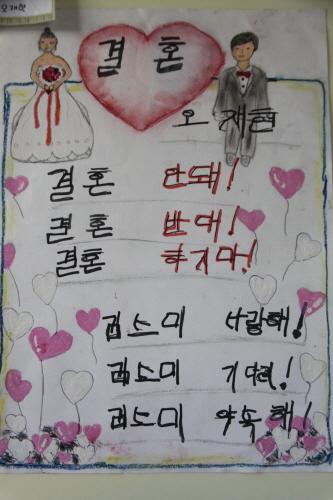 오재현
결혼
오재현
결혼 안돼!
결혼 반대!
결혼 하지마!
김소미 사랑해!
김소미 기다려!
김소미 약속해!